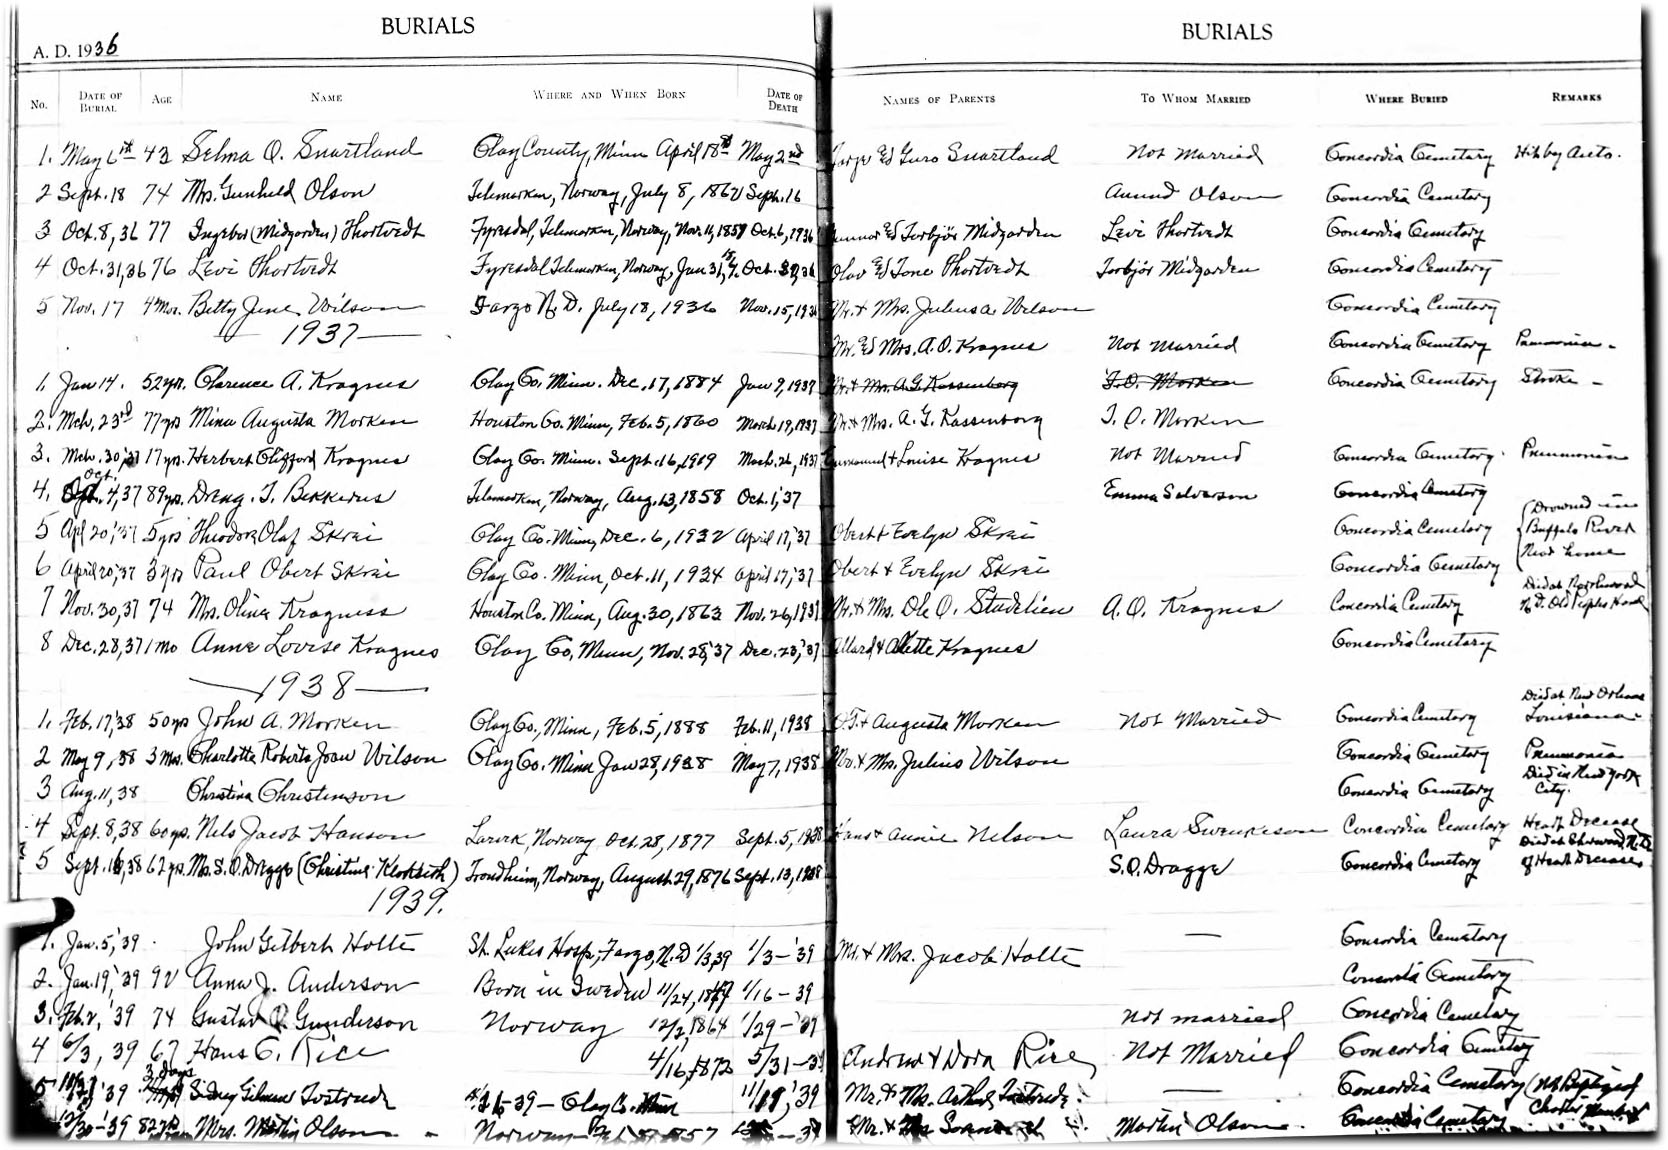 BURIALS
A. D. 1936
No. DATE OF BURIAL AGE NAME WHERE AND WHEN BORN DATE OF DEATH
1. May 6th 43 Selma O. Snartland Clay County, Minn April 18th May 2nd
2 Sept. 18 74 Mrs. Gunhild Olson Telemarken, Norway, July 8, 1862 Sept. 16
3 Oct. 8, 36 77 Ingebor (Midgarden) Thortvedt Fyresdal, Telemarken, Norway, Nov. 11, 1859 Oct. 6, 1936
4 Oct. 31, 36 76 Levi Thortvedt Fyresdal Telemarken, Norway, Jan 31, Oct. 36
5 Nov. 17 4 Mos. Betty June Wilson Fargo N. D. July 18, 1936 Nov. 15, 1936
1937
1. Jan 14. 52 yrs. Clarence A. Kragnes Clay Co. Minn. Dec. 17, 1884 Jan 9, 1937
2. Mch. 23rd 77 yrs Mina Augusta Morken Houston Co. Minn, Feb. 5, 1860 March 19, 1937
3. Mch. 30, 37 17 yrs. Herbert Clifford Kragnes Clay Co. Minn. Sept. 16, 1919 March. 26, 1937
4. Oct. 4, 37 89 yrs. Dreng. T. Bekkerus Telemarken, Norway, Aug. 13, 1858 Oct. 1, '37
5 Apl 20, '37 5 yrs Theodore Olaf Skrei Clay Co. Minn, Dec. 6, 1932 April 17, '37
6 April 20, '37 3 yrs Paul Obert Skrei Clay Co. Minn, Oct. 11, 1934 April 17, '37
7 Nov. 30, 37 74 Mrs. Oline Kragness Houston Co. Minn, Aug. 30, 1863 Nov. 26, 1937
8 Dec. 28, 37 1 mo Anne Lovise Kragnes Clay Co, Minn, Nov. 28, '37 Dec. 23, '37
1938
1. Feb. 17, '38 50 yrs John A. Morken Clay Co., Minn, Feb. 5, 1888 Feb. 11, 1938
2 May 9, 38 3 Mos. Charlotte Roberta Joan Wilson Clay Co. Minn Jan 28, 1938 May 7, 1938
3 Aug. 11, 38 Christina Christenson
4 Sept. 8, 38 60 yrs. Nels Jacob Hanson Larvik, Norway Oct. 28, 1877 Sept. 5, 1938
5 Sept. 16, 38 62 yrs. Mrs. S. O. Dragge (Christine Klokseth) Trondheim, Norway, August 29, 1876 Sept. 13, 1938
1939.
1. Jan. 5, '39 John Gilbert Holte St. Lukes Hosp, Fargo, N. D 1/3 39 1/3 - '39
2. Jan. 19, '39 92 Anna J. Anderson Born in Sweden 11/24, 1/16 - 39
3. Feb. 2, '39 74 Gustav O. Gunderson Norway 12/2, 1864 1/29 - '39
4 6/3, 39 67 Hans C. Rice 4/16, 1872 5/31 - 39
5 '39 3 days Sidney Gilman Tostrude 39 - Clay Co. Minn '39
'39 82 Mrs. Martin Olson Norway
BURIALS
NAMES OF PARENTS TO WHOM MARRIED WHERE BURIED REMARKS
Targe & Guro Snartland Not Married Concordia Cemetary Hit by Auto.
Amund Olson Concordia Cemetary
Gunnar & Torbjør Midgarden Levi Thortvedt Concordia Cemetary
Olav & Tone Thortvedt Torbjør Midgarden Concordia Cemetary
Mr. & Mrs. Julius A Wilson Concordia Cemetary
Mr. & Mrs. A. O. Kragnes Not Married Concordia Cemetary Pneumonia -
Mr. & Mrs. A. G. Kassenborg T. O. Morken Concordia Cemetary Stroke -
Mr. & Mrs. A. G. Kassenborg T. O. Morken
Emmanuel & Louise Kragnes Not Married Concordia Cemetary. Pneumonia
Emma Salverson Concordia Cemetary
Obert & Evelyn Skrei Concordia Cemetary (Drowned in Buffalo River Near home
Obert & Evelyn Skrei Concordia Cemetary
Mr. & Mrs. Ole O. Stadelien A. O. Kragnes Concordia Cemetary Died at Northwood N. D. Old Peoples Home
Allard & Alette Kragnes Concordia Cemetary
O. T. & Augusta Morken Not Married Concordia Cemetary Died at New Orleans Louisiana.
Mr. & Mrs. Julius Wilson Concordia Cemetary Pneumonia
Concordia Cemetary Died in New York City.
Hans & Annie Nelson Laura Swenkeson Concordia Cemetary Heart Decease
S. O. Dragge Concordia Cemetary Died at Sherwood, N. D. of Heart Decease
Mr. & Mrs. Jacob Holte — Concordia Cemetary
Concordia Cemetary
Not married Concordia Cemetary
Andrew & Dora Rice Not Married Concordia Cemetary
Mr. & Mrs. Arthur Tostrude. — Concordia Cemetary (Not Baptized
Mr. & Mrs. Martin Olson. Concordia Cemetary Charter Member